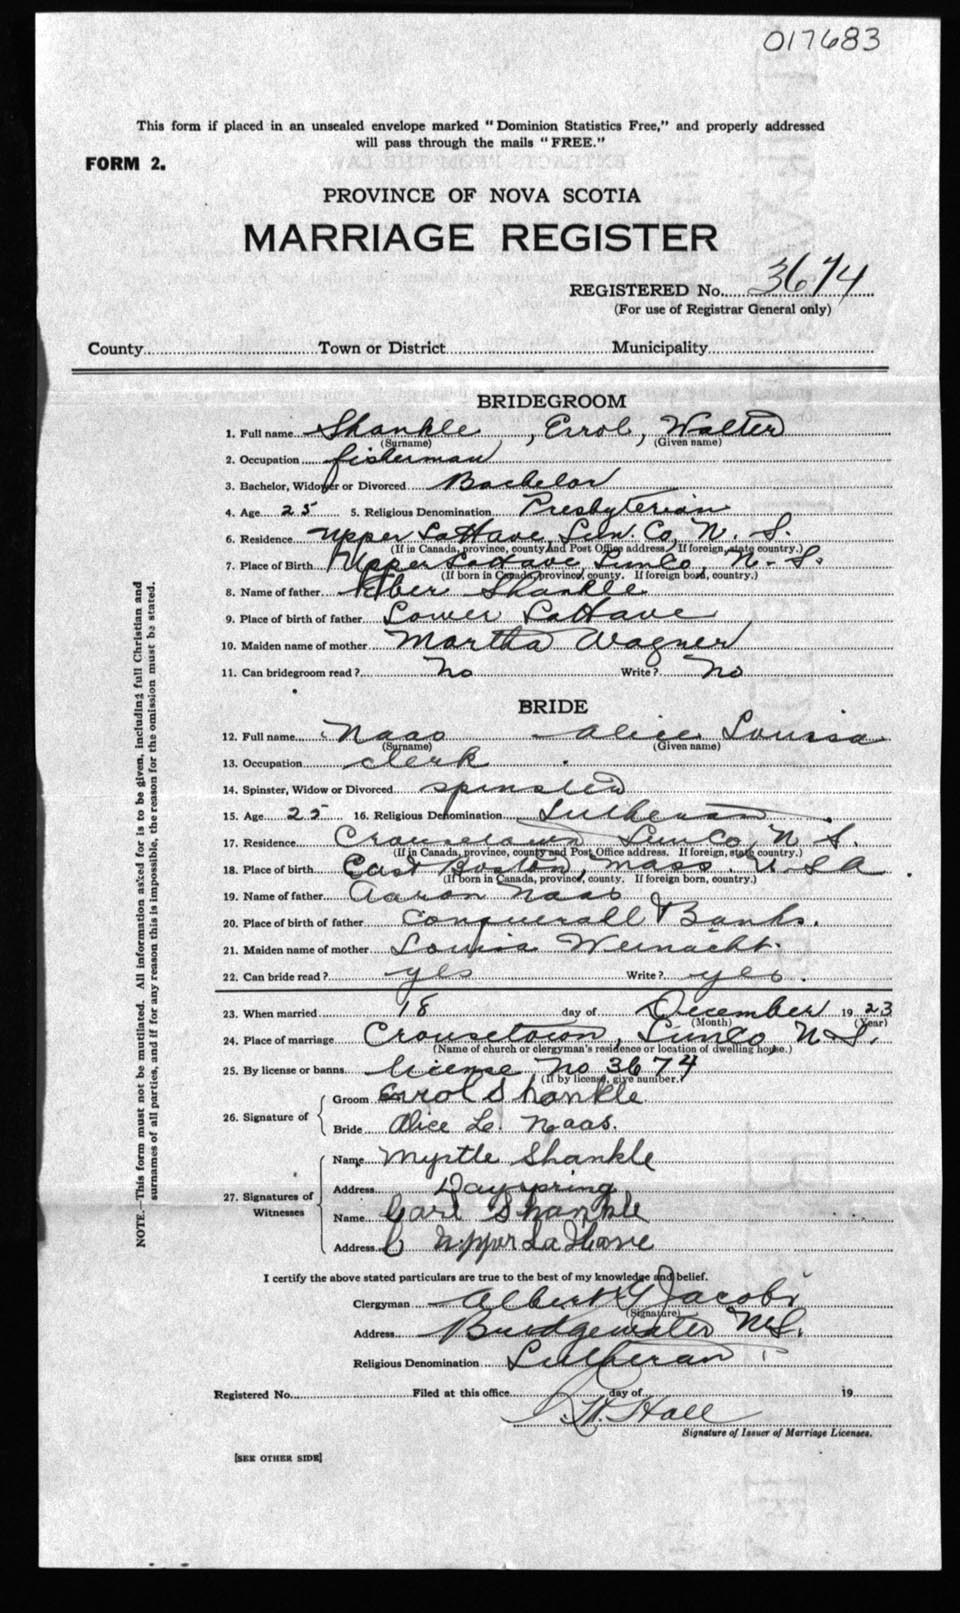 017683
This form if placed in an unsealed envelope marked "Dominion Statistics Free," and properly addressed
will pass through the mails "FREE."
FORM 2.
PROVINCE OF NOVA SCOTIA
MARRIAGE REGISTER
REGISTERED No. 3674
(For use of Registrar General only)
County Town or District Municipality
BRIDEGROOM
1. Full name Shankle, Errol, Walter
(Surname) (Given name)
2. Occupation fisherman
3. Bachelor, Widower or Divorced Bachelor
4. Age 25 5. Religious Denomination Presbyterian
6. Residence Upper LaHave, Lun. Co, N. S.
(If in Canada, province, county and Post Office address. If foreign, state country.)
7. Place of Birth Upper LaHave, Lun Co, N. S.
(If born in Canada, province, county. If foreign born, country.)
8. Name of father Eber Shankle
9. Place of birth of father Lower LaHave
10. Maiden name of mother Martha Wagner
11. Can bridegroom read? No Write? No
BRIDE
12. Full name Naas Alice Louisa
(Surname) (Given name)
13. Occupation clerk
14. Spinster, Widow or Divorced spinster
15. Age 25 16. Religious Denomination Lutheran
17. Residence Crousetown Lun Co, N. S.
(If in Canada, province, county and Post Office address. If foreign, state country.)
18. Place of birth East Boston, Mass. U. S A
(If born in Canada, province, county. If foreign born, country.)
19. Name of father Aaron Naas
20. Place of birth of father Conquerall Banks.
21. Maiden name of mother Louisa Weinacht.
22. Can bride read? yes Write? yes.
23. When married 18 day of December 1923
(Month) (Year)
24. Place of marriage Crousetown, Lun Co N S.
(Name of church or clergyman's residence or location of dwelling house.)
25. By license or banns license No 3674
(If by license, give number.)
26. Signature of
Groom Errol Shankle
Bride Alice L. Naas.
27. Signatures of Witnesses
Name Myrtle Shankle
Address Dayspring
Name Carl Shankle
Address Upper LaHave
I certify the above stated particulars are true to the best of my knowledge and belief.
Clergyman Albert G Jacobi
(Signature)
Address Bridgewater N.S.
Religious Denomination Lutheran
Registered No. Filed at this office day of 19
Hall
Signature of Issuer of Marriage Licenses.
[SEE OTHER SIDE]
NOTE.—This form must not be mutilated. All information asked for is to be given, including full Christian and
surnames of all parties, and if for any reason this is impossible, the reason for the omission must be stated.